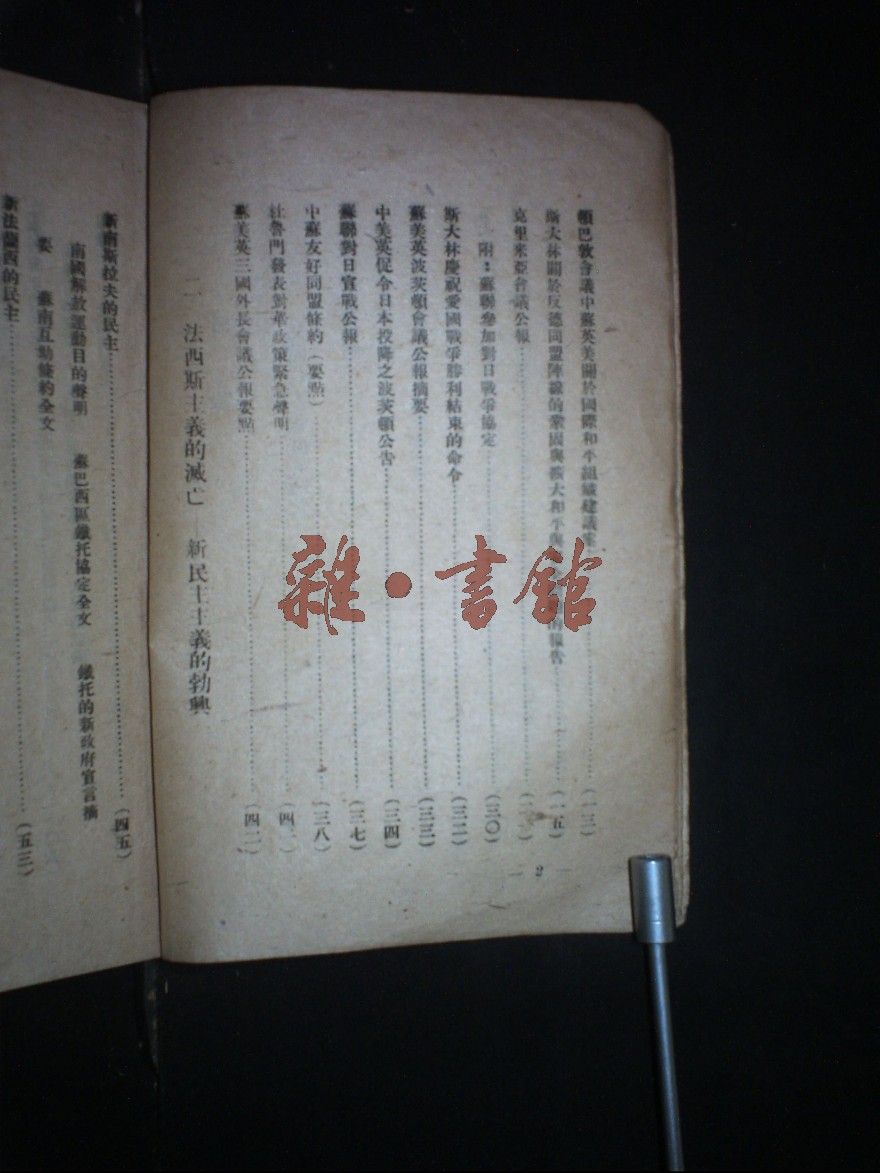 頓巴敦會議中蘇英美關於國際和平組織建議案……(一三)
斯大林關於反德同盟陣線的鞏固與擴大和平與 報告……(一五)
克里米亞會議公報……
附:蘇聯參加對日戰爭協定……(三〇)
斯大林慶祝愛國戰爭勝利結束的命令……(三二)
蘇美英波茨頓會議公報摘要……(三三)
中美英促令日本投降之波茨頓公告……(三四)
蘇聯對日宣戰公報……(三七)
中蘇友好同盟條約(要點)……(三八)
杜魯門發表對華政策緊急聲明……
蘇美英三國外長會議公報要點……(四二)
二 法西斯主義的滅亡—新民主主義的勃興
— 2 —
新南斯拉夫的民主……(四五)
南國解放運動目的聲明 蘇巴西區鐵托協定全文 鐵托的新政府宣言摘
要 蘇南互助條約全文
新法蘭西的民主……(五三)
雜·書館